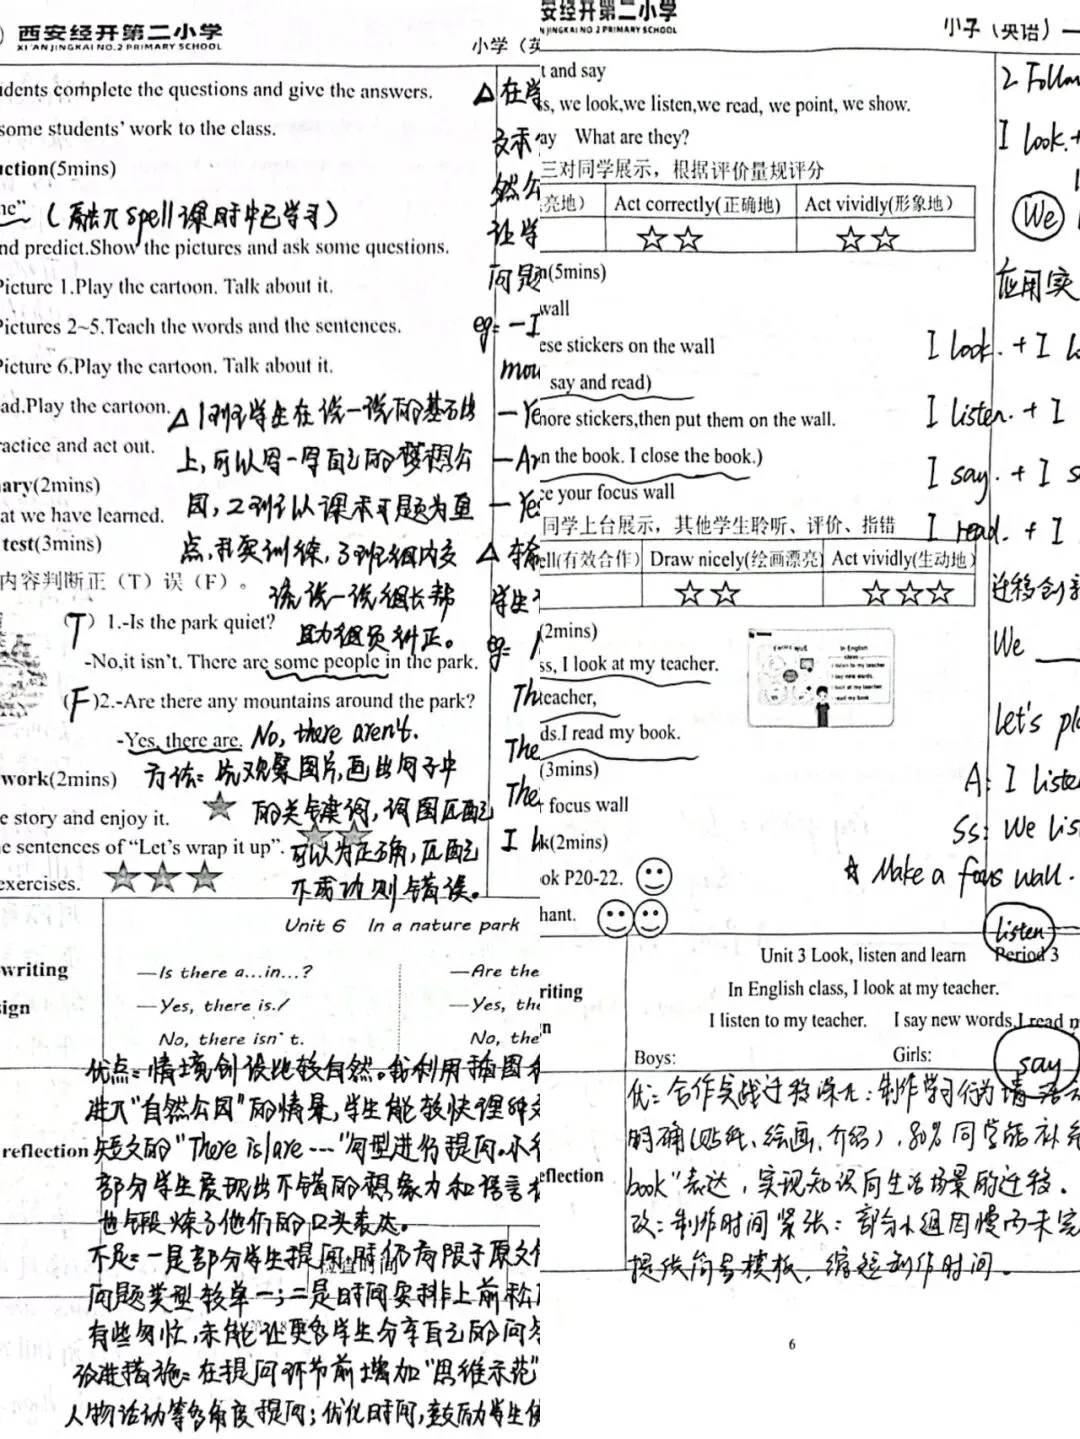 西安经开第二小学
XI'AN JINGKAI NO.2 PRIMARY SCHOOL
小学（英
idents complete the questions and give the answers.
some students' work to the class.
uction(5mins)
me" （融入spell课时中已学习）
nd predict.Show the pictures and ask some questions.
Picture 1.Play the cartoon. Talk about it.
Pictures 2~5.Teach the words and the sentences.
Picture 6.Play the cartoon. Talk about it.
ad.Play the cartoon.
ractice and act out.
ary(2mins)
at we have learned.
test(3mins)
内容判断正（T）误（F）。
△ 1班学生在说一说的基础
上,可以画一画自己的梦想公
园,2班以课本习题为重
点,扎实训练,3班组内交
流说一说组长帮
助组员纠正。
(T) 1.-Is the park quiet?
-No,it isn't. There are some people in the park.
(F)2.-Are there any mountains around the park?
-Yes, there are. No, there aren't.
work(2mins)
方法：先观察图片,画出句子中
的关键词,词图匹配
可以为正确,匹配
不成功则错误。
e story and enjoy it.
e sentences of "Let's wrap it up".
exercises.
△ 在学
然公
让学
问题
eg: -I
mou
-Ye
-Ar
-Ye
△
学生
eg:
Th
The
The
I h
Unit 6 In a nature park
writing
ign
—Is there a...in...?
—Yes, there is./
No, there isn't.
—Are the
—Yes, the
No, the
reflection
优点：情境创设比较自然。我利用插图
进入"自然公园"的情景,学生能较快理解
短文的"There is/are ---"句型进行提问。小
部分学生展现出不错的想象力和语言
也锻炼了他们的口头表达。
不足：一是部分学生提问时仍局限于原文
问题类型较单一；二是时间安排上前松
有些匆忙,未能让更多学生分享自己的问
改进措施：在提问环节前增加"思维示范"
人物活动等多角度提问；优化时间,鼓励学生
检查时间
安经开第二小学
N JINGKAI NO.2 PRIMARY SCHOOL
小学（英语）一
t and say
ss, we look,we listen,we read, we point, we show.
ay What are they?
三对同学展示，根据评价量规评分
亮地） Act correctly(正确地) Act vividly(形象地）
n(5mins)
wall
ese stickers on the wall
say and read)
more stickers,then put them on the wall.
n the book. I close the book.)
ce your focus wall
同学上台展示，其他学生聆听、评价、指错
ell(有效合作) Draw nicely(绘画漂亮) Act vividly(生动地)
(2mins)
ss, I look at my teacher.
teacher,
ds.I read my book.
(3mins)
focus wall
k(2mins)
ok P20-22.
hant.
In English
class
2. Follow
I look. +
We
应用实
I look. + I lo
I listen. + I
I say. + I s
I read. + I
迁移创新
We ___
Let's pl
A: I liste
Ss: We lis
☆ Make a focus wall.
listen
Unit 3 Look, listen and learn Period 3
In English class, I look at my teacher.
I listen to my teacher. I say new words.I read m
Boys: Girls:
say
riting
n
eflection
优：合作实践迁移深化：制作学习行为墙活
明确(贴纸、绘画、介绍),80%同学能补充
book"表达,实现知识向生活场景的迁移。
改：制作时间紧张：部分小组因慢而未完
提供简易模板,缩短制作时间。
6